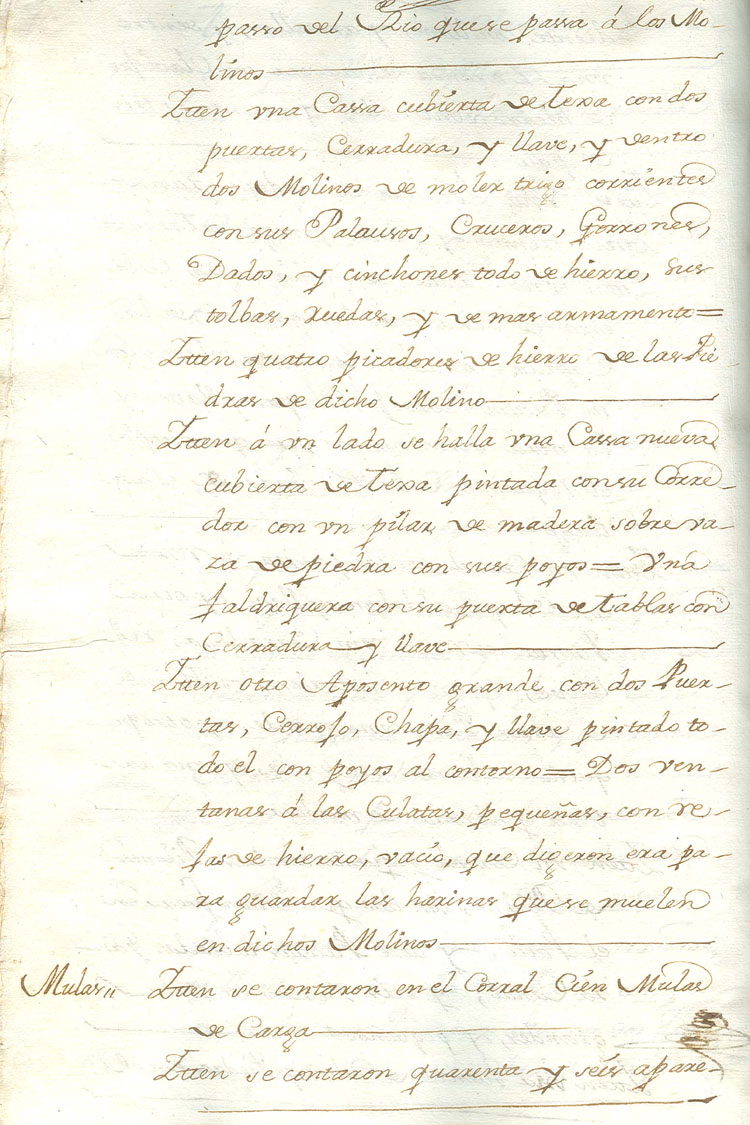 passo del Rio que se passa á los Mo-
linos
Ytten vna Cassa cubierta de Texa con dos
puertas, Cerradura, y llave, y dentro
dos Molinos de moler trigo corrientes
con sus Palausos, Cruceros, Gorrones,
Dados, y cinchones todo de hierro, sus
tolbas, ruedas, y de mas armamento=
Ytten quatro picadores de hierro de las Pie-
dras de dicho Molino
Ytten á vn lado se halla vna Cassa nueva
cubierta de Texa pintada con su Corre-
dor con vn pilar de madera sobre va-
za de piedra con sus poyos= Vna
faldriquera con su puerta de tablas con
Cerradura y llave
Ytten otro Aposento grande con dos Puer-
tas, Cerrojo, Chapa, y llave pintado to-
do el con poyos al contorno= Dos ven-
tanas á las Culatas, pequeñas, con re-
jas de hierro, vacío, que digeron era pa-
ra guardar las harinas que se muelen
en dichos Molinos
Mulas,, Ytten se contaron en el Corral Cien Mulas
de Carga
Ytten se contaron quarenta y seis apare-